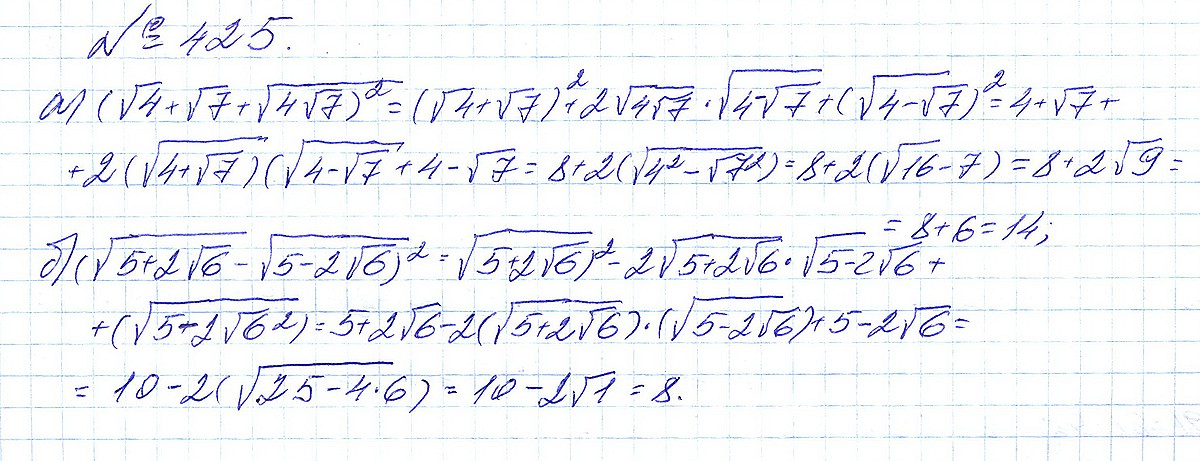 № 425.
а) (√4+√7+√(4√7))² = (√4+√7)² + 2√4√7 · √(4-√7) + (√4-√7)² = 4+√7+
+2(√(4+√7))(√(4-√7) + 4-√7 = 8+2(√(4²-√7²)) = 8+2(√16-7) = 8+2√9 =
= 8+6=14;
б) (√(5+2√6) - √(5-2√6))² = √(5+2√6))² - 2√(5+2√6) · √5-2√6 +
+(√(5-2√6²)) = 5+2√6-2(√(5+2√6)) · (√(5-2√6)) + 5-2√6 =
= 10-2(√(25-4·6)) = 10-2√1 = 8.